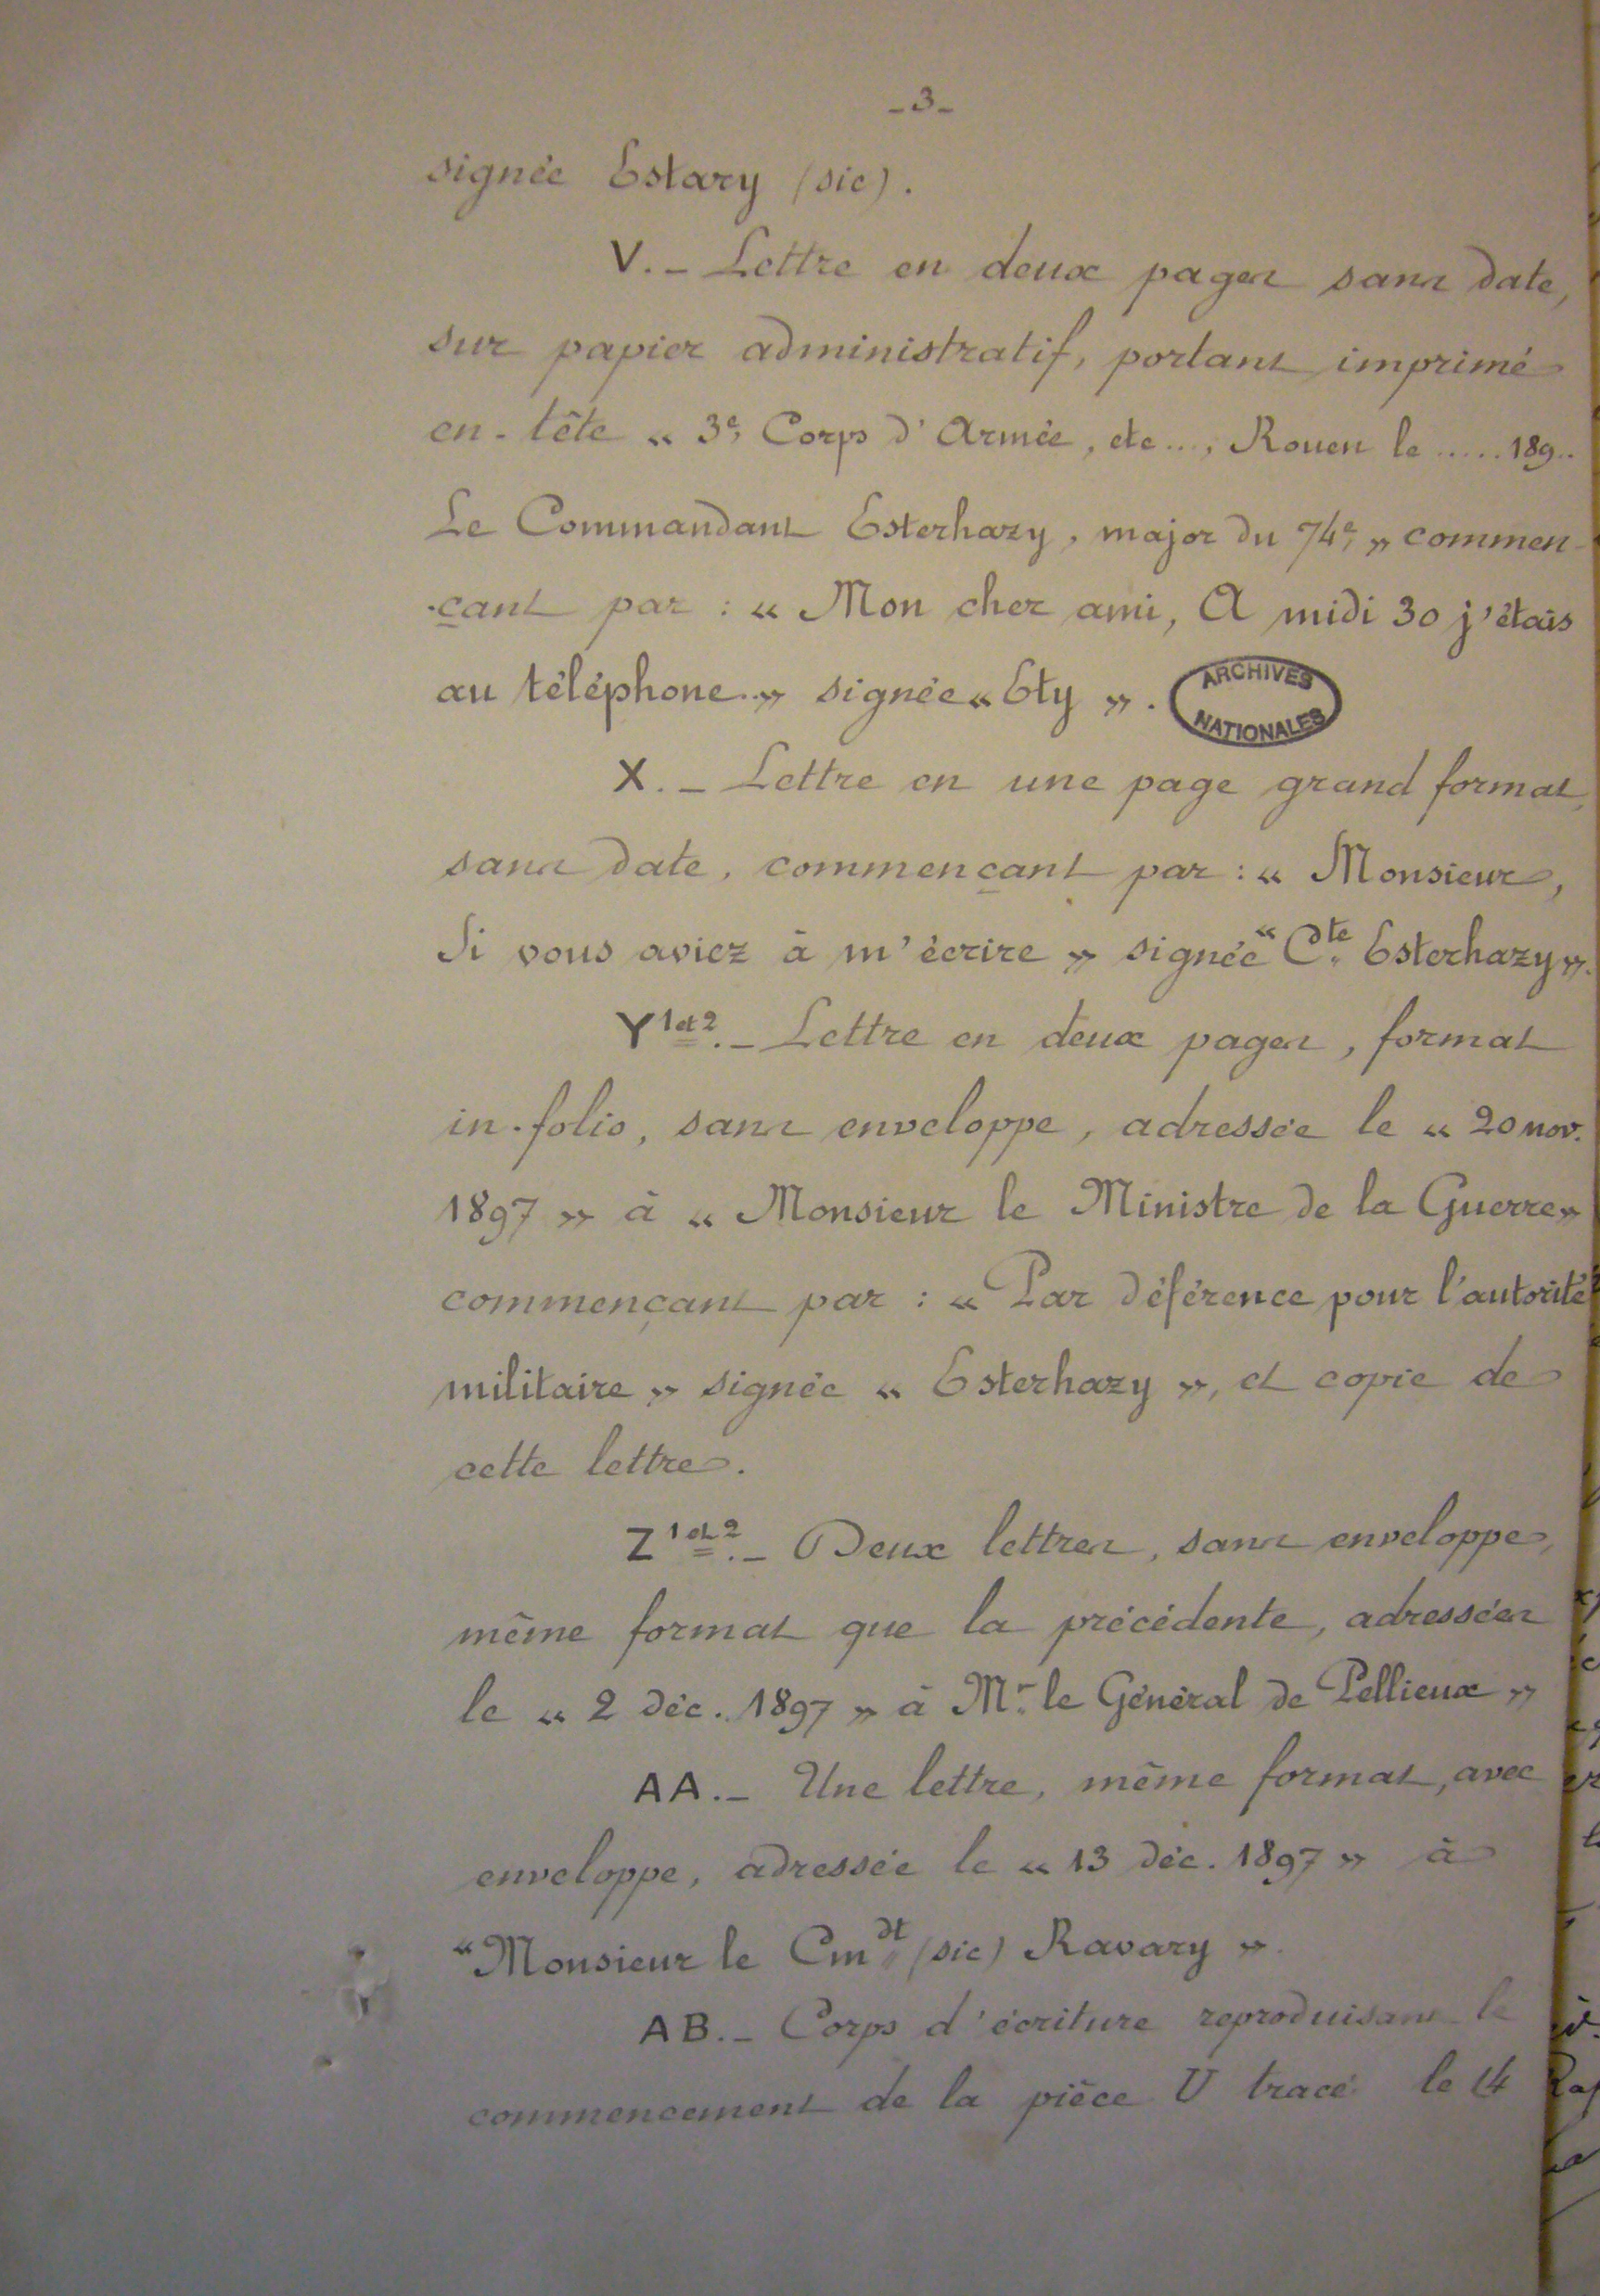 -3-
signée Estary (sic).
V. - Lettre en deux pages sans date,
sur papier administratif, portant imprimé
en-tête « 3e, Corps d'Armée, etc..., Rouen le ..... 189..
Le Commandant Esterhazy, major du 74e, » commen-
-çant par : « Mon cher ami, A midi 30 j'étais
au téléphone.» signée « Ety ».
ARCHIVES
NATIONALES
X. - Lettre en une page grand format,
sans date, commençant par : « Monsieur,
Si vous aviez à m'écrire » signée “ Cte Esterhazy ».
Y 1 et 2. - Lettre en deux pages, format
in-folio, sans enveloppe, adressée le « 20 nov.
1897 » à « Monsieur le Ministre de la Guerre»
commençant par : « Par déférence pour l'autorité
militaire » signée « Esterhazy », et copie de
cette lettre.
Z 1 et 2. - Deux lettres, sans enveloppe,
même format que la précédente, adressées
le « 2 déc. 1897 » à Mr. le Général de Pellieux »
AA. - Une lettre, même format, avec
enveloppe, adressée le « 13 déc. 1897 » à
“Monsieur le Cmdt (sic) Ravary ».
AB. - Corps d'écriture reproduisant le
commencement de la pièce U tracé le 14